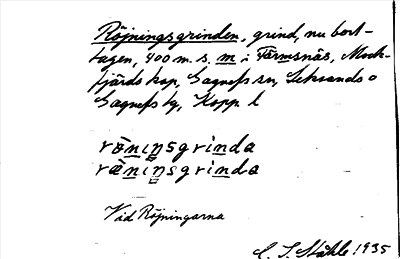 Röjningsgrinden, grind, nu bort-
tagen, 400 m. s. m i Färmsnäs, Mock-
fjärds kap, Gagnefs sn, Leksands o
Gagnefs tg, Kopp. l
rönıŋsgrinda
rænıŋsgrinda
Vid Röjningarna
C. I. Ståhle 1935